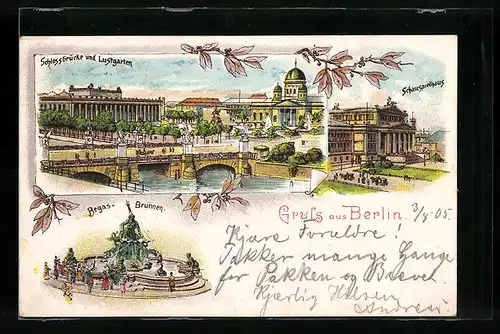 Schlossbrücke und Lustgarten
Schauspielhaus
Begas-Brunnen.
Gruss aus Berlin.
3/8-05
Kjære Forældre!
Takker mange Gange
for Pakken og Brevet
Kjærlig Hilsen
Andreas